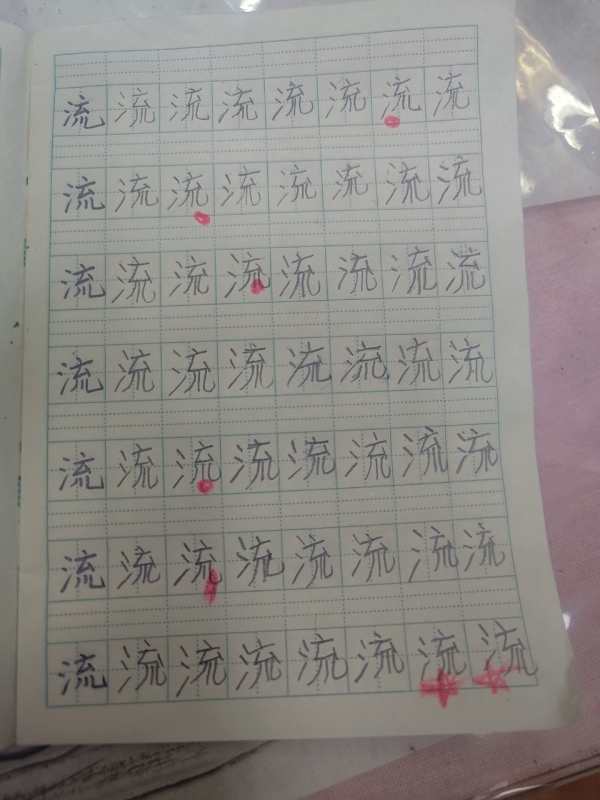 流流流流流流流流
流流流流流流流流
流流流流流流流流
流流流流流流流流
流流流流流流流流
流流流流流流流流
流流流流流流流流